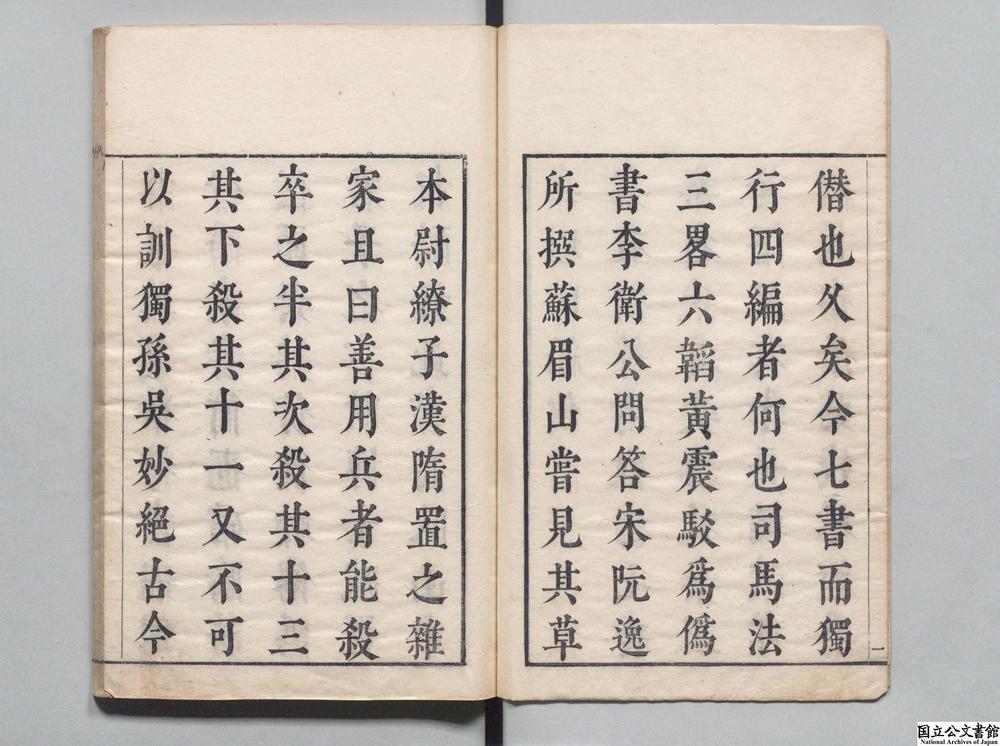 僣也久矣今七書而獨
行四編者何也司馬法
三畧六韜黃震駁爲僞
書李衛公問答宋阮逸
所撰蘇眉山嘗見其草
一
本尉繚子漢隋置之雜
家且曰善用兵者能殺
卒之半其次殺其十三
其下殺其十一又不可
以訓獨孫吳妙絕古今
国立公文書館
National Archives of Japan